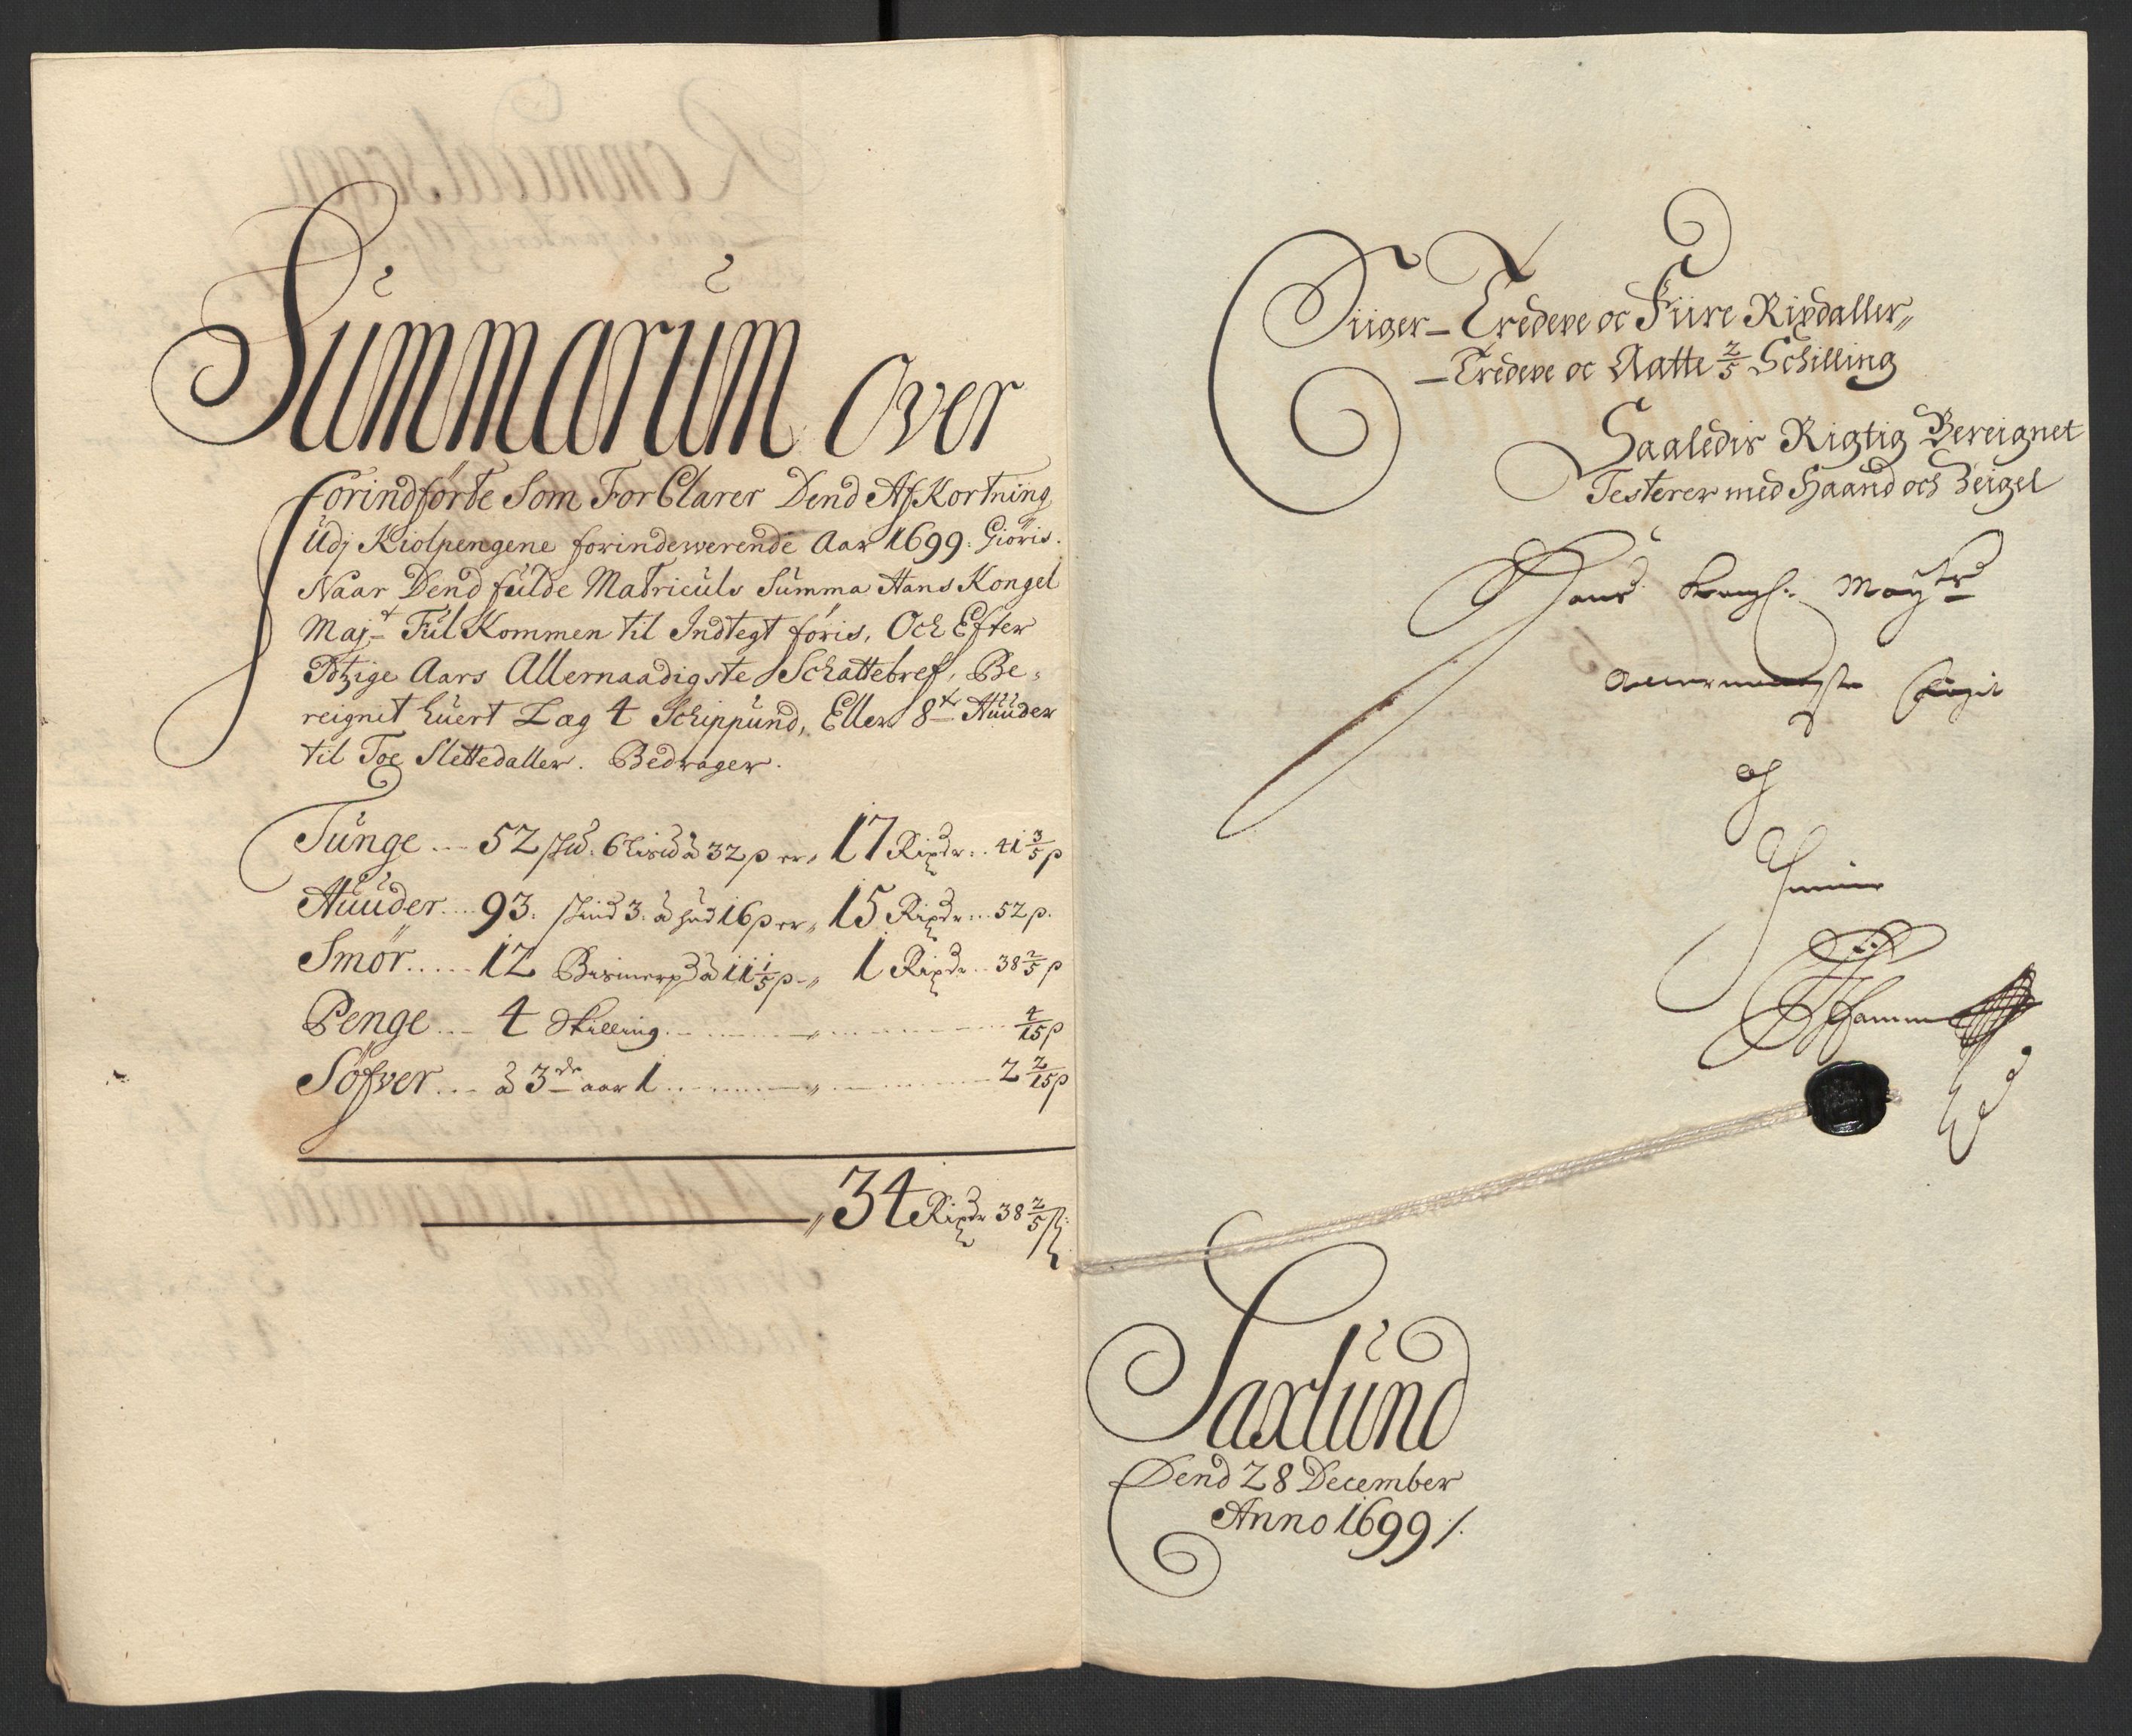 Summarum Over
forindförte Som ForClarer Dend AfKortning
Udj Kiolpengene forindewerende Aar 1699: Giöris.
Naar Dend fulde Matriculs Summa Hans Kongel
Maj.t FulKommen til Indtegt föris, Och Efter
Itzige Aars Allernaadigste Schattebref, Be-
reignit huert Lag 4 Schippund, Eller 8te Huuder
til Toe Slettedaller. Bedrager.
Tunge ... 52 6 à 32 β er, 17 Rixdr. 41 3/5 β
Huuder ... 93. 3. à hud 16 β er, 15 Rixdr. 52 β.
Smör ..... 12 Bismerpd à 11 1/5 β 1 Rixdr. 38 2/5 β
Penge ... 4 Skilling ... 4/15 β
Söfver ... à 3de aar 1 ... 2 2/15 β
34 Rixdr 38 2/5 β
Siiger - Tredeve oc Fiire Rixdaller,,
- Tredeve oc Aatte 2/5 Schilling
Saaledis Rigtig Bereignet
Testerer med Haand och Zeigel
Hans Kongl: Mayts
af
Saxlund
Dend 28 December
Anno 1699 /.